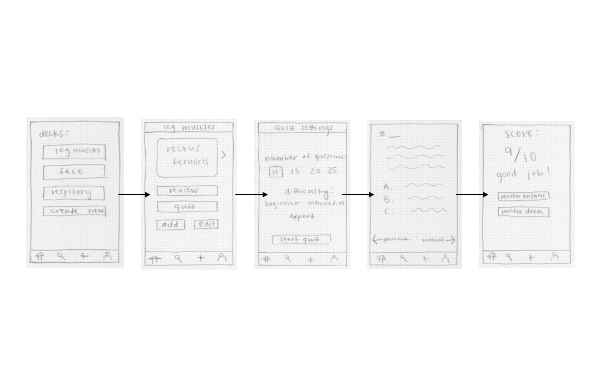 decks:
leg muscles
face
respitory
create new
leg muscles
rectus
femoris
review
quiz
Add
Edit
Quiz settings
number of question:
10 15 20 25
difficulty:
beginner intermediate
expert
start quiz
#
A.
B.
C.
previous
score:
9/10
good job!
review answers
review deck